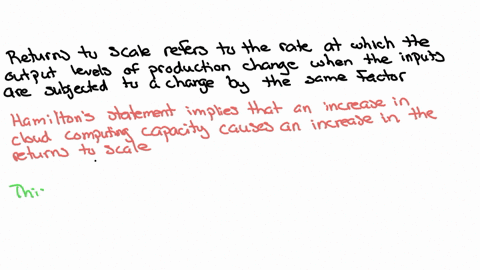 Returns to scale refers to the rate at which the
output levels of production change when the inputs
are subjected to a change by the same factor
Hamilton's statement implies that an increase in
cloud computing capacity causes an increase in the
returns to scale
Thi